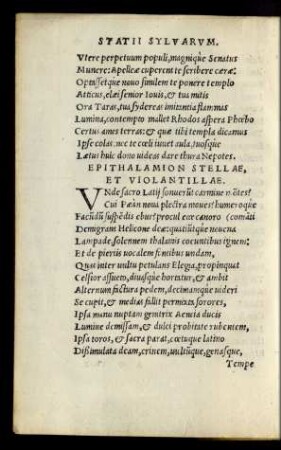 STATII SYLVARVM.
Vtere perpetuum populi, magniq́ue Senatus
Munere: Apelleæ cuperent te scribere ceræ:
Optasset́que nouo similem te ponere templo
Atticus, elæi senior Iouis, & tua mitis
Ora Taras, tua sydereas imitantia flammas
Lumina, contempto mallet Rhodos aspera Phœbo
Certus ames terras: & quæ tibi templa dicamus
Ipse colas: nec te cœli iuuet aula, tuosque
Lætus huic dono uideas dare thura Nepotes.
EPITHALAMION STELLAE,
ET VIOLANTILLAE.
VNde sacro Latij sonuerūt carmine mōtes?
Cui Pæan noua plectra moues? humeroq́ue
Facūdū suspēdis ebur? procul ecce canoro (comāti
Demigrant Helicone deæ: quatiūtq́ue nouena
Lampade solennem thalamis coeuntibus ignem:
Et de pieriis uocalem fontibus undam,
Quas inter uultu petulans Elegea, propinquat
Celsior assueto, diuasq́ue hortatur, & ambit
Alternum factura pedem, decimamq́ue uideri
Se cupit, & medias fallit permixta sorores,
Ipsa manu nuptam genitrix Aeneia ducis
Lumine demissam, & dulci probitate rubentem,
Ipsa toros, & sacra parat, cœtuque latino
Dissimulata deam, crinem, uultúsque, genasque,
Tempe